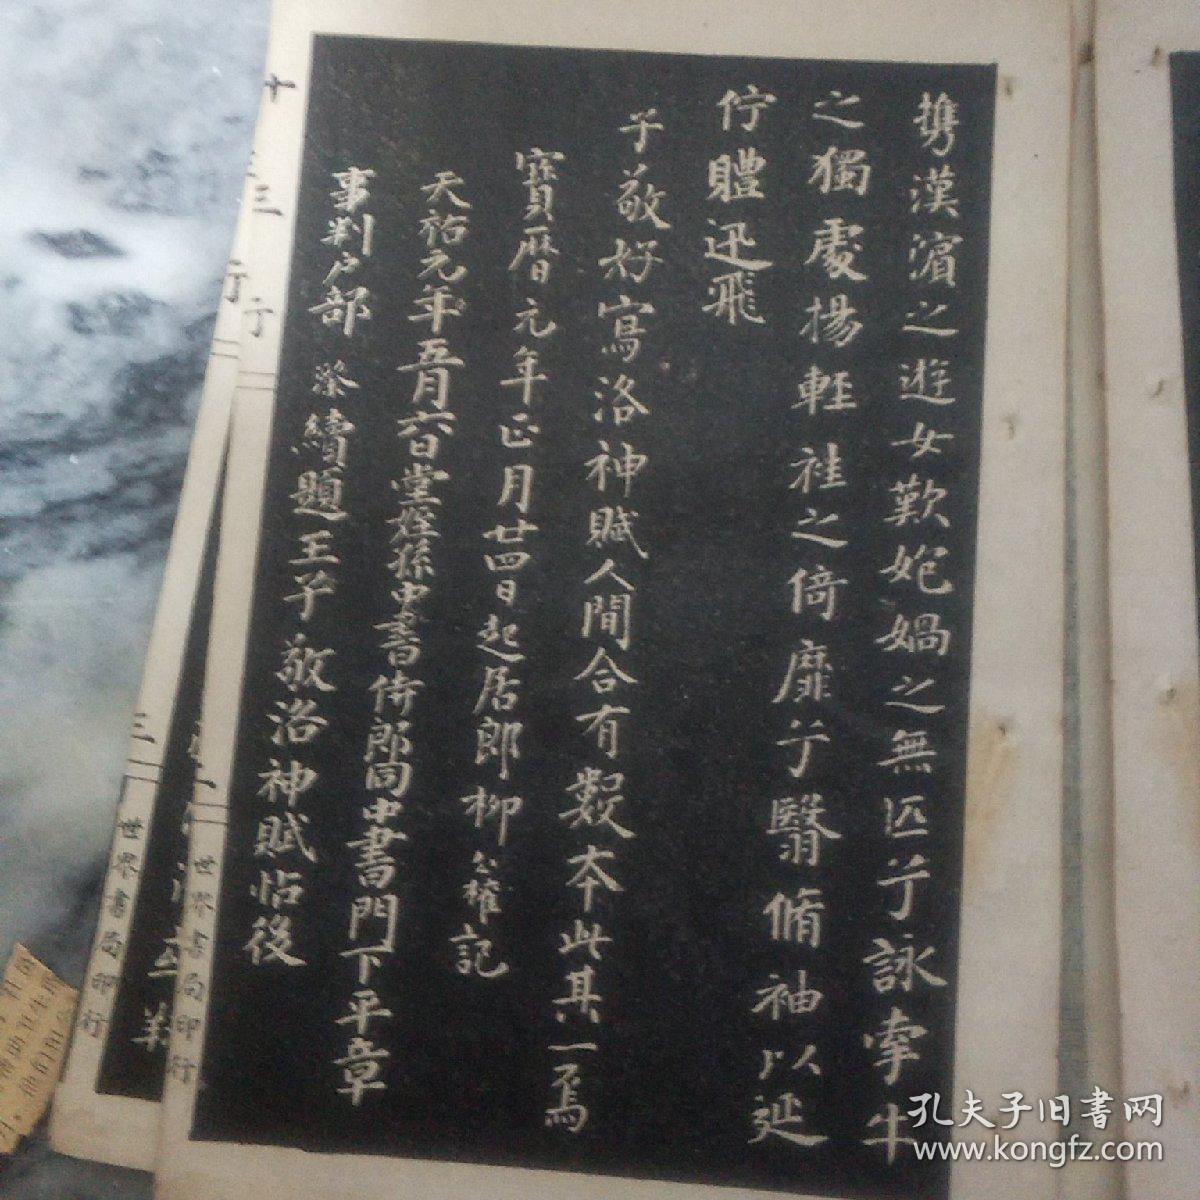 攜漢濱之遊女歎匏媧之無匹兮詠牽牛
之獨處揚輕袿之倚靡兮翳脩袖以延
佇體迅飛
子敬好寫洛神賦人間合有數本此其一焉
寶曆元年正月廿四日起居郎柳公權記
天祐元年五月六日堂姪孫中書侍郎同中書門下平章
事判户部璨續題王子敬洛神賦帖後
十三行
三
世界書局印行
三
行
三
世界書局印行
孔夫子旧书网
www.kongfz.com